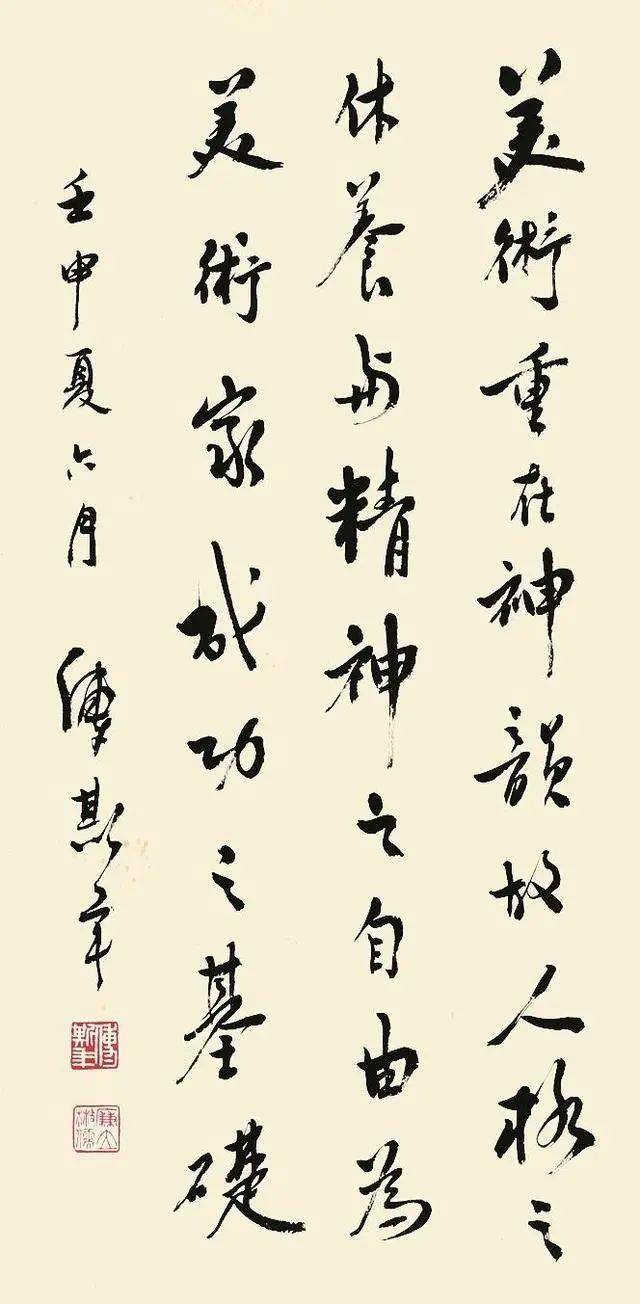 美術重在神韻故人格之
休養与精神之自由為
美術家成功之基礎
壬申夏六月 傅斯年